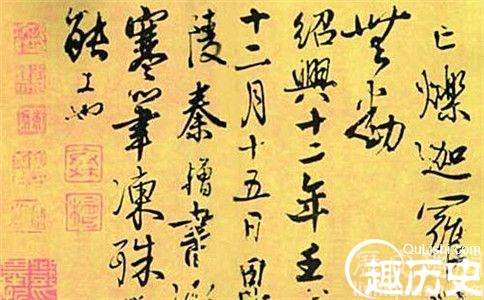 亡爍迦羅
無動
紹興十二年壬
十二月十五日
陵秦檜書
寒筆凍殊
能工也
QuLiShi.Com
趣历史